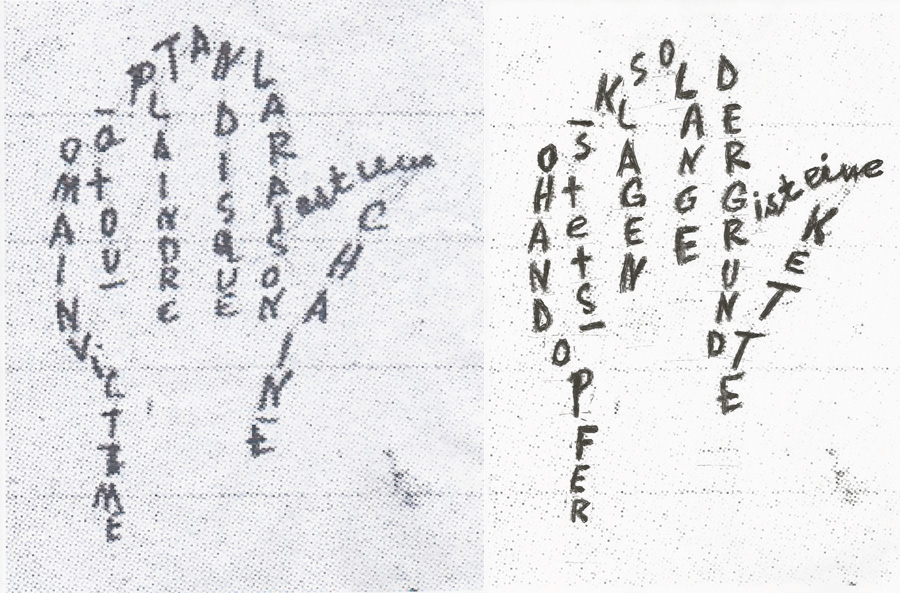 OMAIN
VICTIME
-atout-
PLAINDRE
TANDISQUE
LARAISON
est une
CHAINE
OHAND
OPFER
-stets-
KLAGEN
SOLANGE
DERGRUND
ist eine
KETTE